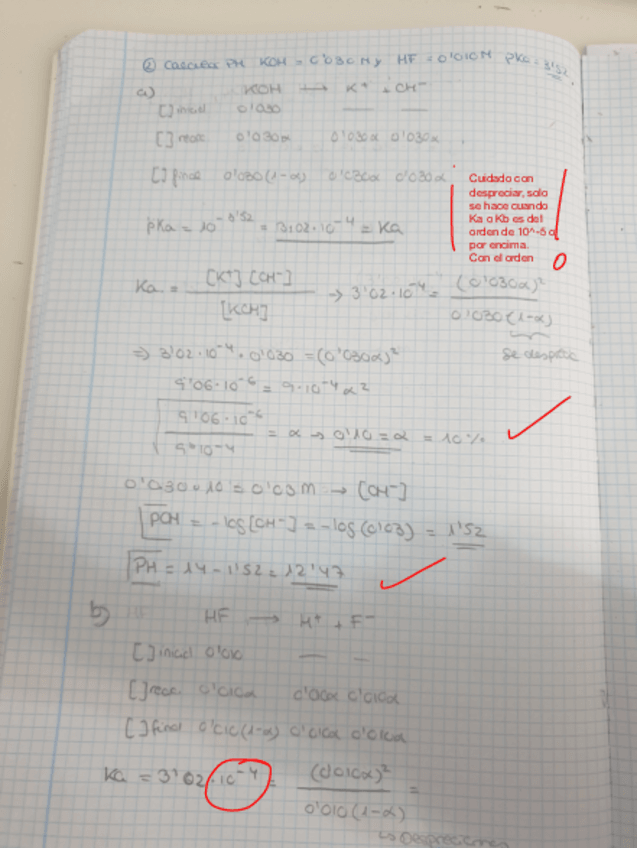 ② Calcular PH KOH = 0'030M y HF = 0'010M pKa = 3'52
a) KOH → K⁺ + OH⁻
[ ] inicial 0'030 — —
[ ] reac 0'030α 0'030α 0'030α
[ ] final 0'030(1-α) 0'030α 0'030α
Cuidado con
despreciar, solo
se hace cuando
Ka o Kb es del
orden de 10^-5 o
por encima.
Con el orden
pKa = 10⁻³'⁵² = 3'02·10⁻⁴ = Ka
Ka = [K⁺][OH⁻] / [KOH] → 3'02·10⁻⁴ = (0'030α)² / 0'030(1-α)
se desprecia
⇒ 3'02·10⁻⁴ · 0'030 = (0'030α)²
9'06·10⁻⁶ = 9·10⁻⁴ α²
√(9'06·10⁻⁶ / 9·10⁻⁴) = α → 0'10 = α = 10%
0'030·10 = 0'03M → [OH⁻]
POH = -log[OH⁻] = -log(0'03) = 1'52
PH = 14 - 1'52 = 12'47
b) HF → H⁺ + F⁻
[ ] inicial 0'010 — —
[ ] reac 0'010α 0'010α 0'010α
[ ] final 0'010(1-α) 0'010α 0'010α
Ka = 3'02·10⁻⁴ = (0'010α)² / 0'010(1-α) =
↳ Despreciamos